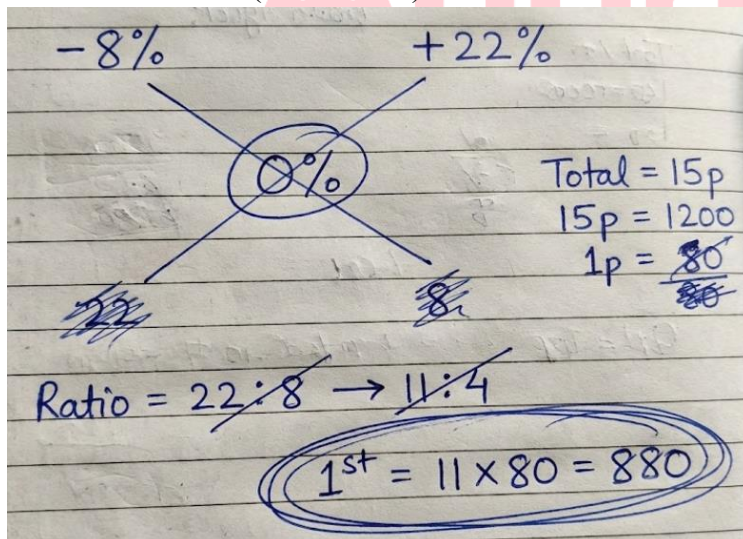 -8% +22%
0%
Total = 15p
15p = 1200
1p = 80
22 8
Ratio = 22:8 → 11:4
1st = 11 x 80 = 880